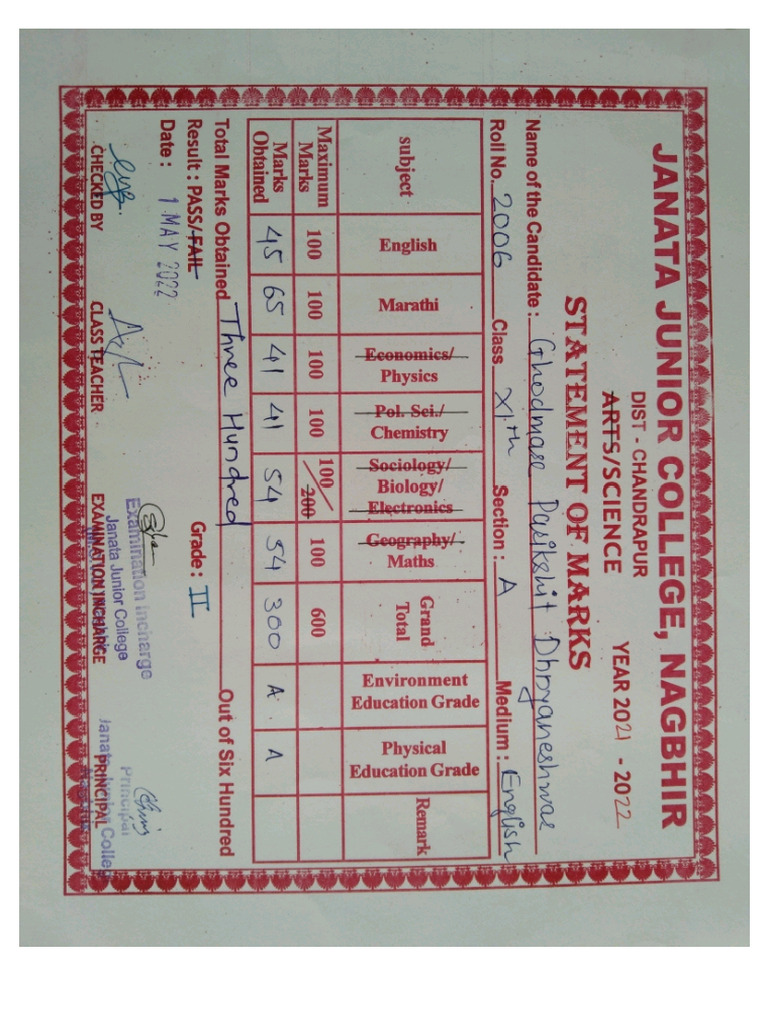 JANATA JUNIOR COLLEGE, NAGBHIR
DIST - CHANDRAPUR
ARTS/SCIENCE YEAR 2021 - 2022
STATEMENT OF MARKS
Name of the Candidate : Ghodmare Parikshit Dhnyaneshwar
Roll No. 2006 Class XIth Section : A Medium : English
subject English Marathi Economics/ Physics Pol. Sci./ Chemistry Sociology/ Biology/ Electronics Geography/ Maths Grand Total Environment Education Grade Physical Education Grade Remark
Maximum Marks 100 100 100 100 100/200 100 600
Marks Obtained 45 65 41 41 54 54 300 A A
Total Marks Obtained Three Hundred Out of Six Hundred
Result : PASS/FAIL Grade : II
Date : 1 MAY 2022
Examination Incharge
Janata Junior College
Principal
CHECKED BY CLASS TEACHER EXAMINATION INCHARGE PRINCIPAL